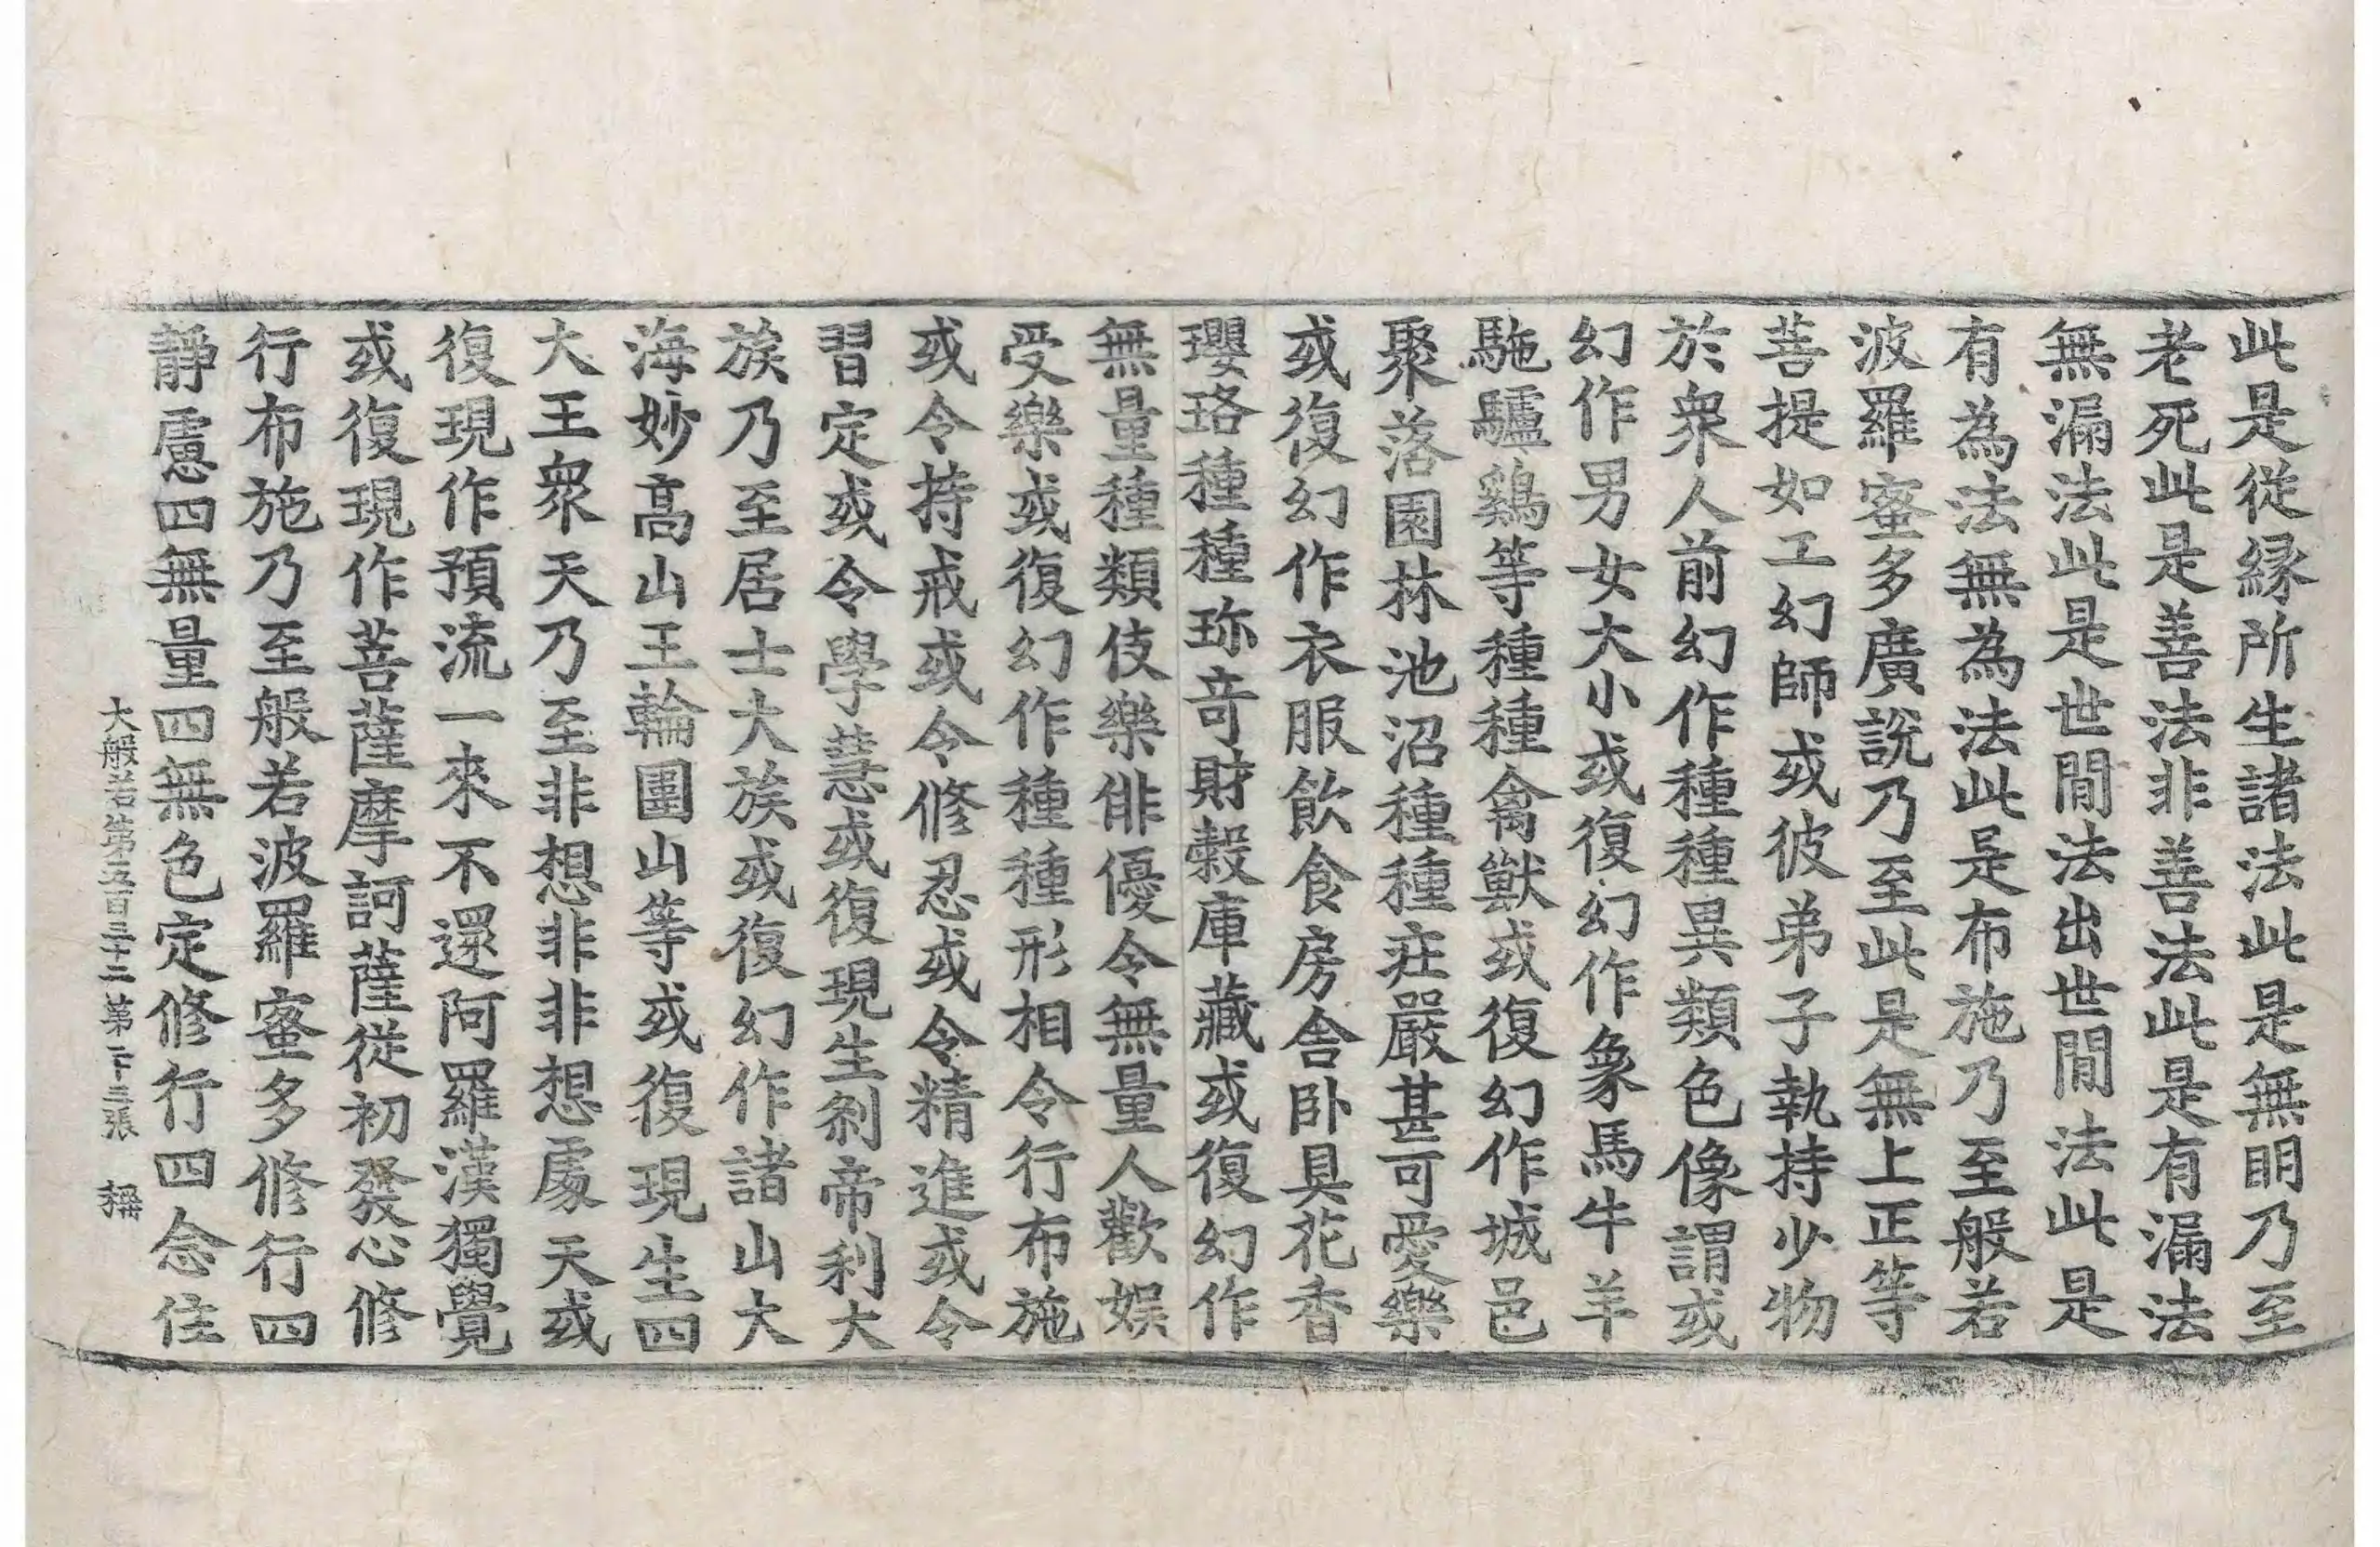 此是從縁所生諸法此是無明乃至
老死此是善法非善法此是有漏法
無漏法此是世間法出世間法此是
有為法無為法此是布施乃至般若
波羅蜜多廣說乃至此是無上正等
菩提如工幻師或彼弟子執持少物
於衆人前幻作種種異類色像謂或
幻作男女大小或復幻作象馬牛羊
駞驢鷄等種種禽獸或復幻作城邑
聚落園林池沼種種莊嚴甚可愛樂
或復幻作衣服飲食房舍卧具花香
瓔珞種種珎竒財穀庫藏或復幻作
無量種類伎樂俳優令無量人歡娛
受樂或復幻作種種形相令行布施
或令持戒或令修忍或令精進或令
習定或令學慧或復現生剎帝利大
族乃至居士大族或復幻作諸山大
海妙高山王輪圍山等或復現生四
大王衆天乃至非想非非想處天或
復現作預流一來不還阿羅漢獨覺
或復現作菩薩摩訶薩從初發心修
行布施乃至般若波羅蜜多修行四
靜慮四無量四無色定修行四念住
大般若第五百三十二 第二十三張 稱